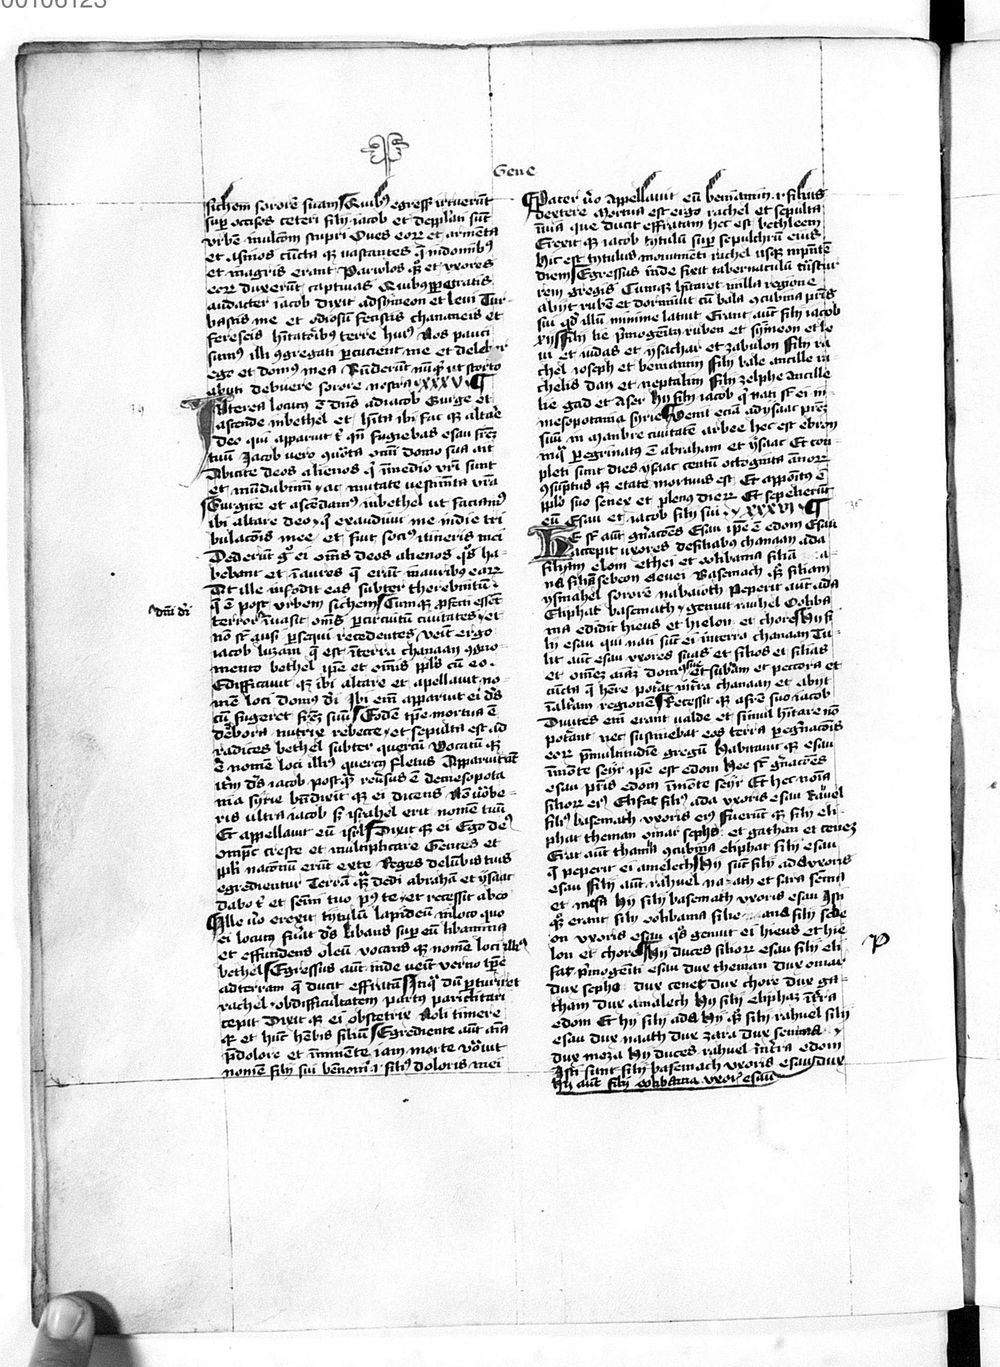 00106123
Gene
sichem sororē suam Quibꝰ egressis irruerūt
suꝑ occisos ceteri filij iacob et depplati sūt
vrbē in ultōm stupri Oues eoꝝ et armēta
et asinos cūcta qꝫ vastantes q̄ in domibꝰ
et in agris erant Paruulos qꝫ et vxores
eoꝝ duxerūt captiuas Quibꝰ ꝑpetratis
audacter iacob dixit ad symeon et leui Tur-
bastis me et odiosū fecistis chananeis et
fereseis hītatorībꝰ terre huiꝰ Nos pauci
sumꝰ illi ꝯgregati ꝑcucient me et delebor
ego et domꝰ mea Rn̄derūt nūqꝫ ut scorto
abuti debuere sorore nostra xxxv
Interea locutꝰ ē dn̄s ad iacob Surge et
ascende in bethel et hīta ibi fac qꝫ altare
deo qui apparuit t̄ qn̄ fugiebas esau fr̄eꝫ
tuū Iacob vero ꝯuocata om̄i domo sua ait
Abicite deos alienos q̄ in medio vr̄i sunt
et mūdamini ac mutate vestimēta vr̄a
Surgite et ascendamꝰ in bethel ut faciamꝰ
ibi altare deo q̄ exaudiuit me in die tri
bulacōis mee et fuit sociꝰ itineris mei
Dederūt gͦ ei om̄s deos alienos qͦs ha-
bebant et inaures q̄ erāt in auribꝰ eaꝝ
At ille infodit eas subter therebintū
q̄ ē post vrbem sichem Cumqꝫ ꝓfecti essēt
dn̄i dei
terror inuasit om̄s ꝑ circuitū ciuitates et
nō sūt ausi ꝑsequi recedentes Venit ergo
iacob luzam q̄ est in terra chanaan ꝯgno-
mento bethel ipē et om̄is ppl̄s cū eo
Edificauit qꝫ ibi altare et apellauit no-
mē loci domꝰ dei Ibi em̄ apparuit ei dꝰ
cū fugeret fr̄eꝫ suū Eodē tpē mortua ē
debora nutrix rebece et sepulta est ad
radices bethel subter quercū Vocatū qꝫ
ē nomē loci illiꝰ quercꝰ fletus Apparuit aūt
itm̄ dꝰ iacob postqꝫ reūsus ē de mesopota
mia syrie bn̄dixit qꝫ ei dicens Nō vocabe-
ris ultra iacob sꝫ israhel erit nomē tuū
Et appellauit eū isrl̄ Dixit qꝫ ei Ego deꝰ
omp̄s cresce et multiplicare Gentes et
ppl̄i nacōnū erūt ex te Reges de lūbis tuis
egredientur Terrā qꝫ dedi abrahā et ysaac
dabo t̄ et semī tuo pꝰ te et recessit ab eo
Ille vͦo erexit tytulū lapideū in loco quo
ei locutꝰ fuat dꝰ libans suꝑ eū libamina
et effundens oleū vocans qꝫ nomē loci illiꝰ
bethel Egressus aūt inde venit verno tpē
ad terram q̄ ducit effratā In qͣ dū parturiret
rachel ob difficultatem partꝰ periclitari
cepit Dixit qꝫ ei obstetrix Noli timere
qꝫ et hūc hēbis filiū Egrediente aūt aīa
p̄ dolore et iminēte iam morte vocauit
nomē filij sui bēnoni i filiꝰ doloris mei
Pater vͦo appellauit eū beniamin i filius
dextere Mortua est ergo rachel et sepulta
in via que ducit effratam hec est bethleem
Erexit qꝫ iacob tytulū suꝑ sepulchrū eius
Hic est tytulus monumēti rachel usqꝫ in pn̄tē
diem Egressus inde fixit tabernaculū trās tur
rem gregis Cumqꝫ hītaret in illa regione
abijt rubē et dormiuit cū bala ꝯcubina pr̄is
sui qd̄ illū minime latuit Erant aūt filij iacob
xij Filij lie pͥmogenitꝰ ruben et symeon et le
ui et iudas et ysachar et zabulon Filij ra
chel ioseph et beniamin Filij bale ancille ra
chelis dan et neptalim Filij zelphe ancille
lie gad et aser Hij filij iacob q̄ nati sūt ei in
mesopotamia syrie Venit eciā ad ysaac pr̄eꝫ
suū in mambre ciuitatē arbee hec est ebron
in qͣ ꝑegrinatꝰ ē abraham et ysaac Et com
pleti sunt dies ysaac centū octoginta annoꝝ
ꝯsumptus qꝫ etate mortuus est Et appositꝰ ē
ppl̄o suo senex et plenus dieꝝ Et sepelierūt
eū Esau et iacob filij sui xxxvi
He sūt aūt gn̄acōes Esau ipē ē edom Esau
accepit vxores de filiabꝰ chanaan ada
filiam elom ethei et oolibama filiā a-
na filie sebeon eleuei Basemach qꝫ filiam
ysmahel sororē nabaioth Peperit aūt ada
Eliphat basemath genuit rauhel Ooliba
ma edidit hieus et hielon et chore Hij fi
lij esau qui nati sūt ei in terra chanaan Tu-
lit aūt esau vxores suas et filios et filias
et om̄ez aīaꝫ domꝰ sue et subām et peccora et
cūcta q̄ hēre potāt in t̄ra chanaan et abijt
in altām regionē Recessit qꝫ a fr̄e suo iacob
Diuites em̄ erant valde et simul hītare nō
potāt nec sustinebat eos terra ꝑegn̄acōis
eoꝝ p̄ multitudine gregū Habitauit qꝫ esau
in mōte seyr ipē est edom Hee sūt gn̄acōes
esau pr̄is edom in mōte seyr Et hec noīa
filioꝝ eiꝰ Elifat filiꝰ ada vxoris esau Rauel
filiꝰ basemath vxoris eiꝰ Fuerūt qꝫ filij eli-
phat theman omar sepho et gathan et cenez
Erat aūt thamna ꝯcubina eliphat filij esau
q̄ peperit ei amelech Hij sūt filij ada vxoris
esau Filij aūt rahuel naath et sara semna
et mesa Hij filij basemath vxoris esau Isti
qꝫ erant filij oolibama filie ana filij sebe
on vxoris esau qͦs genuit ei hieus et hie
lon et chore Hij duces filioꝝ esau filij eli
fat pͥmogeniti esau dux theman dux omar
dux sepho dux cenez dux chore dux ga-
tham dux amalech Hij filij eliphaz in t̄ra
edom Et hij filij ada Hij qꝫ filij rahuel filij
esau dux naath dux zara dux semna
dux meza Hij duces rahuel in t̄ra edom
Isti sunt filij basemach vxoris esau dux
Hij aūt filij oolibama vxorꝭ esau